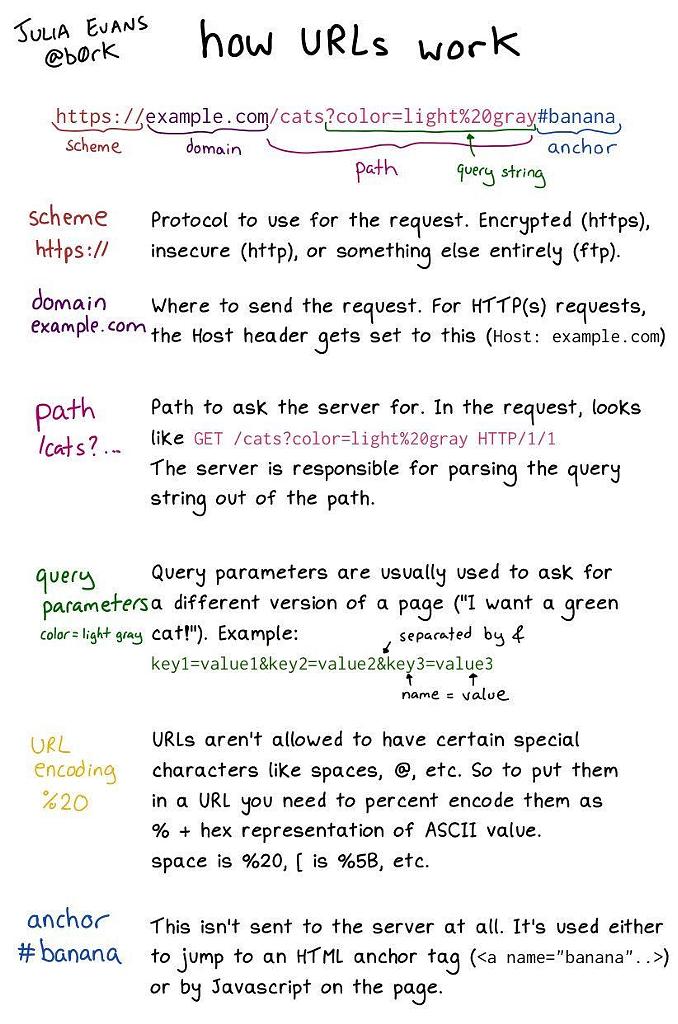 JULIA EVANS
@b0rk
how URLs work
https://example.com/cats?color=light%20gray#banana
scheme
domain
path
query string
anchor
scheme
https://
Protocol to use for the request. Encrypted (https),
insecure (http), or something else entirely (ftp).
domain
example.com
Where to send the request. For HTTP(s) requests,
the Host header gets set to this (Host: example.com)
path
/cats?...
Path to ask the server for. In the request, looks
like GET /cats?color=light%20gray HTTP/1/1
The server is responsible for parsing the query
string out of the path.
query
parameters
color=light gray
Query parameters are usually used to ask for
a different version of a page ("I want a green
cat!"). Example:
separated by &
key1=value1&key2=value2&key3=value3
name = value
URL
encoding
%20
URLs aren't allowed to have certain special
characters like spaces, @, etc. So to put them
in a URL you need to percent encode them as
% + hex representation of ASCII value.
space is %20, [ is %5B, etc.
anchor
#banana
This isn't sent to the server at all. It's used either
to jump to an HTML anchor tag (<a name="banana"..>)
or by Javascript on the page.